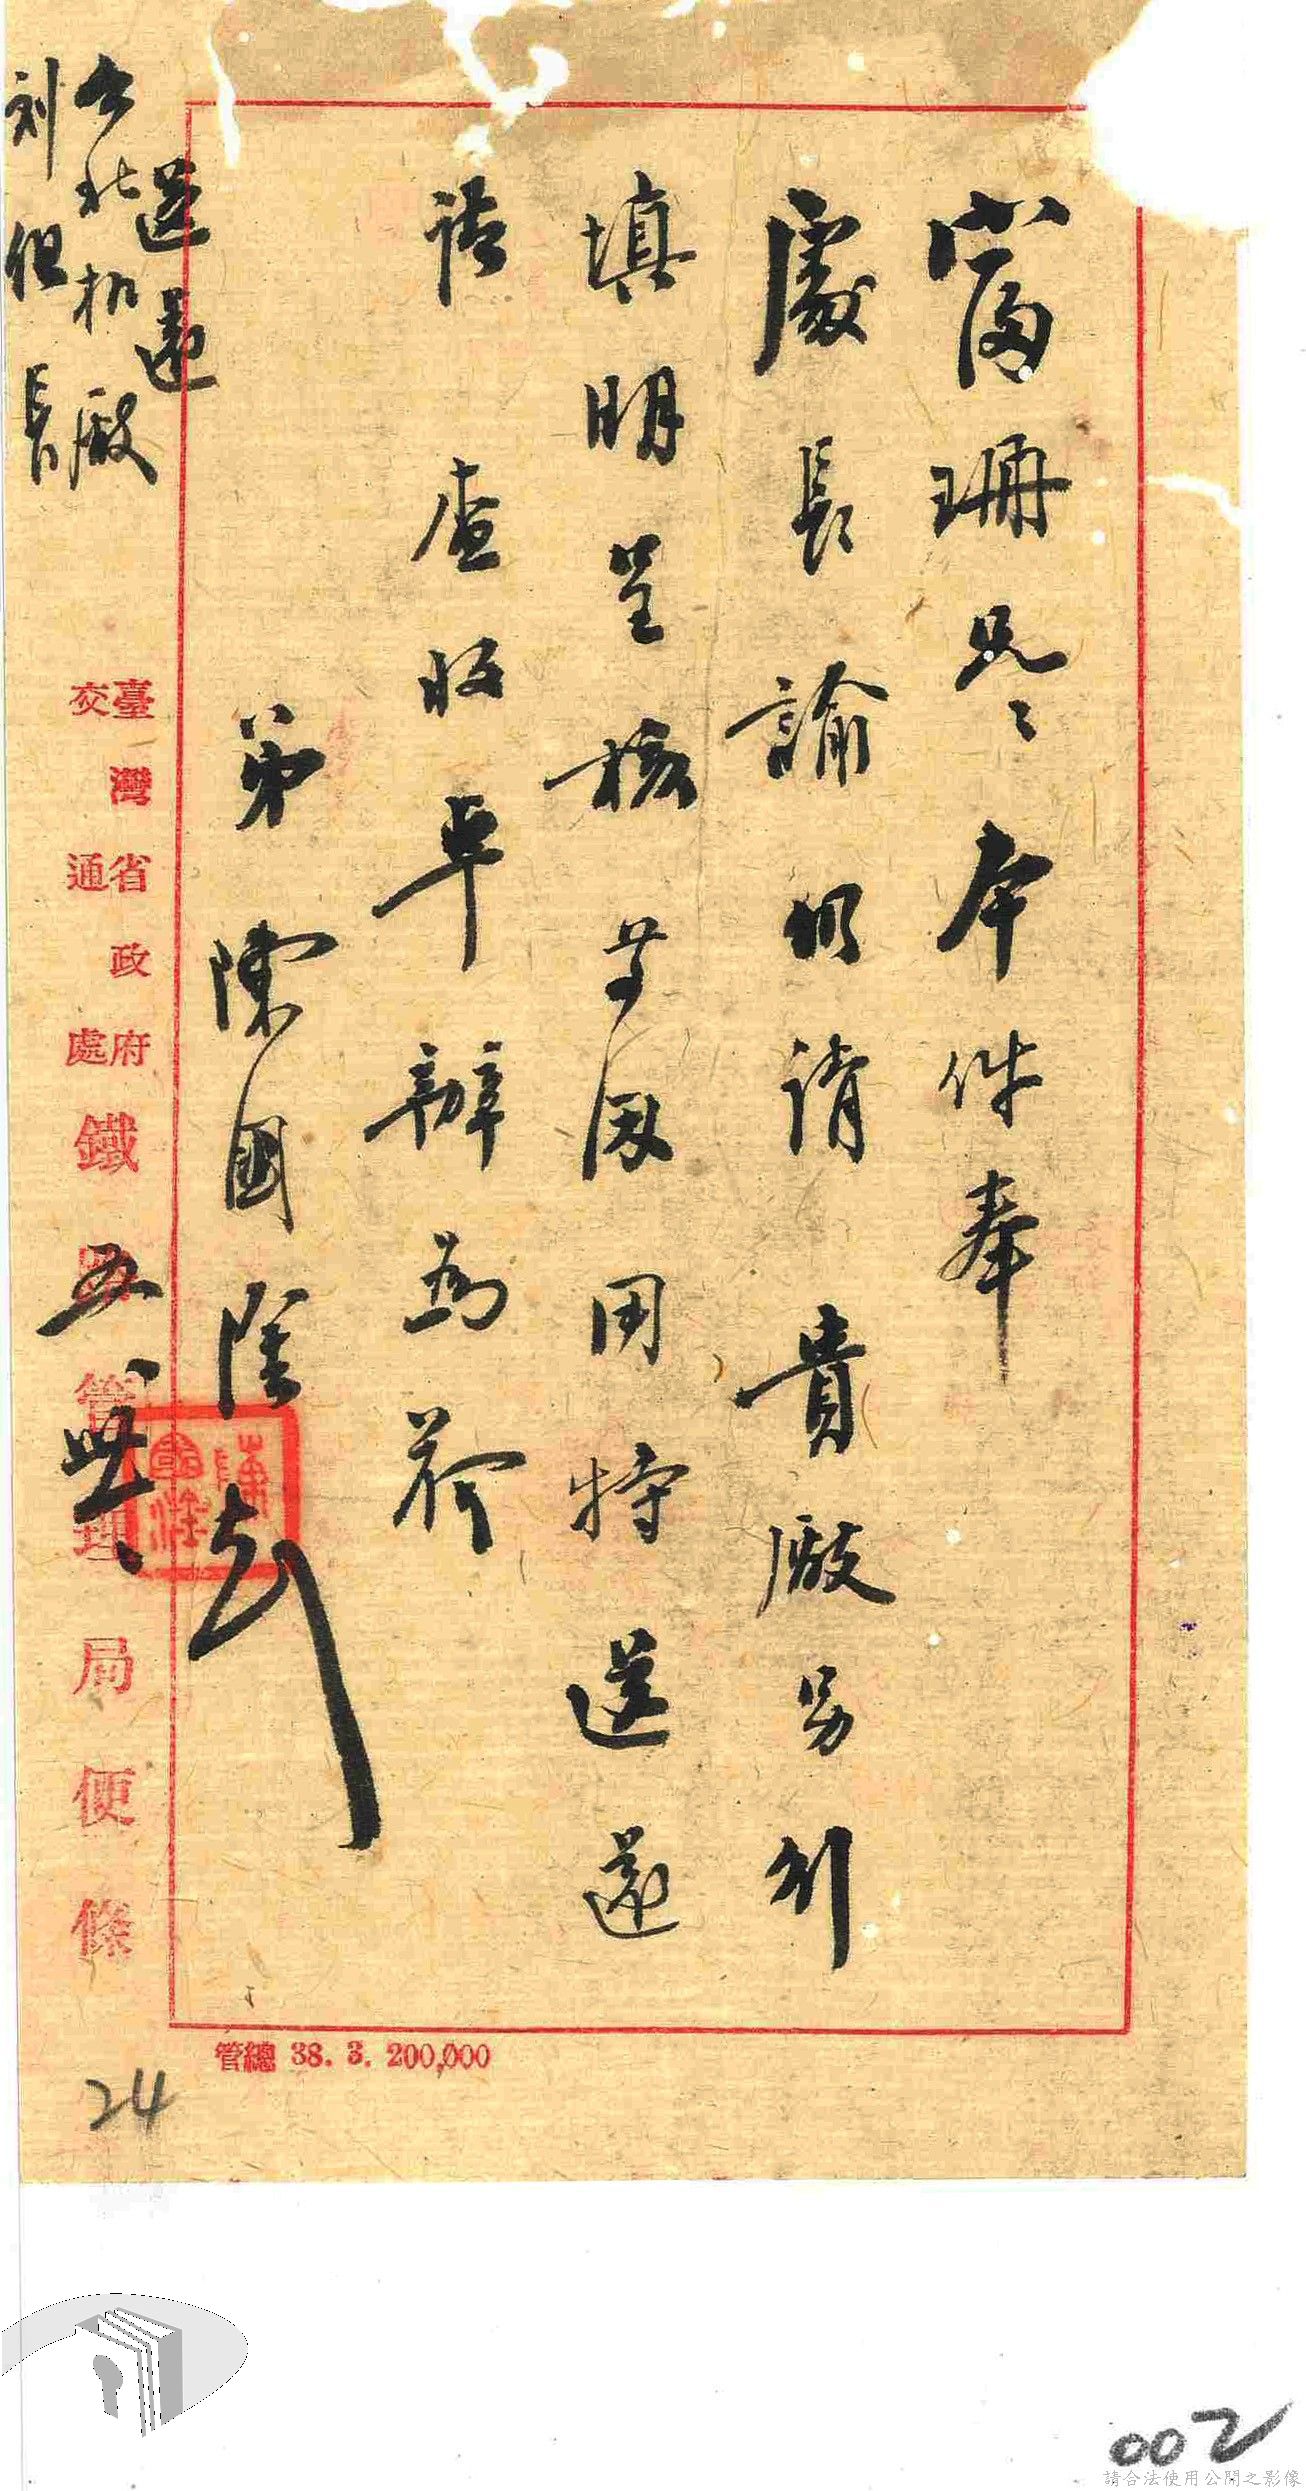 富珊兄：本件奉
處長諭仍請 貴廠另列
填明呈核等因用特送還
請 查收卓辦為荷
弟陳國
送還
台北机廠
刘 長
臺灣省政府
交通處
鐵路管理局便條
五、卅、
管總 38. 3. 200,000
24
002
請合法使用公開之影像